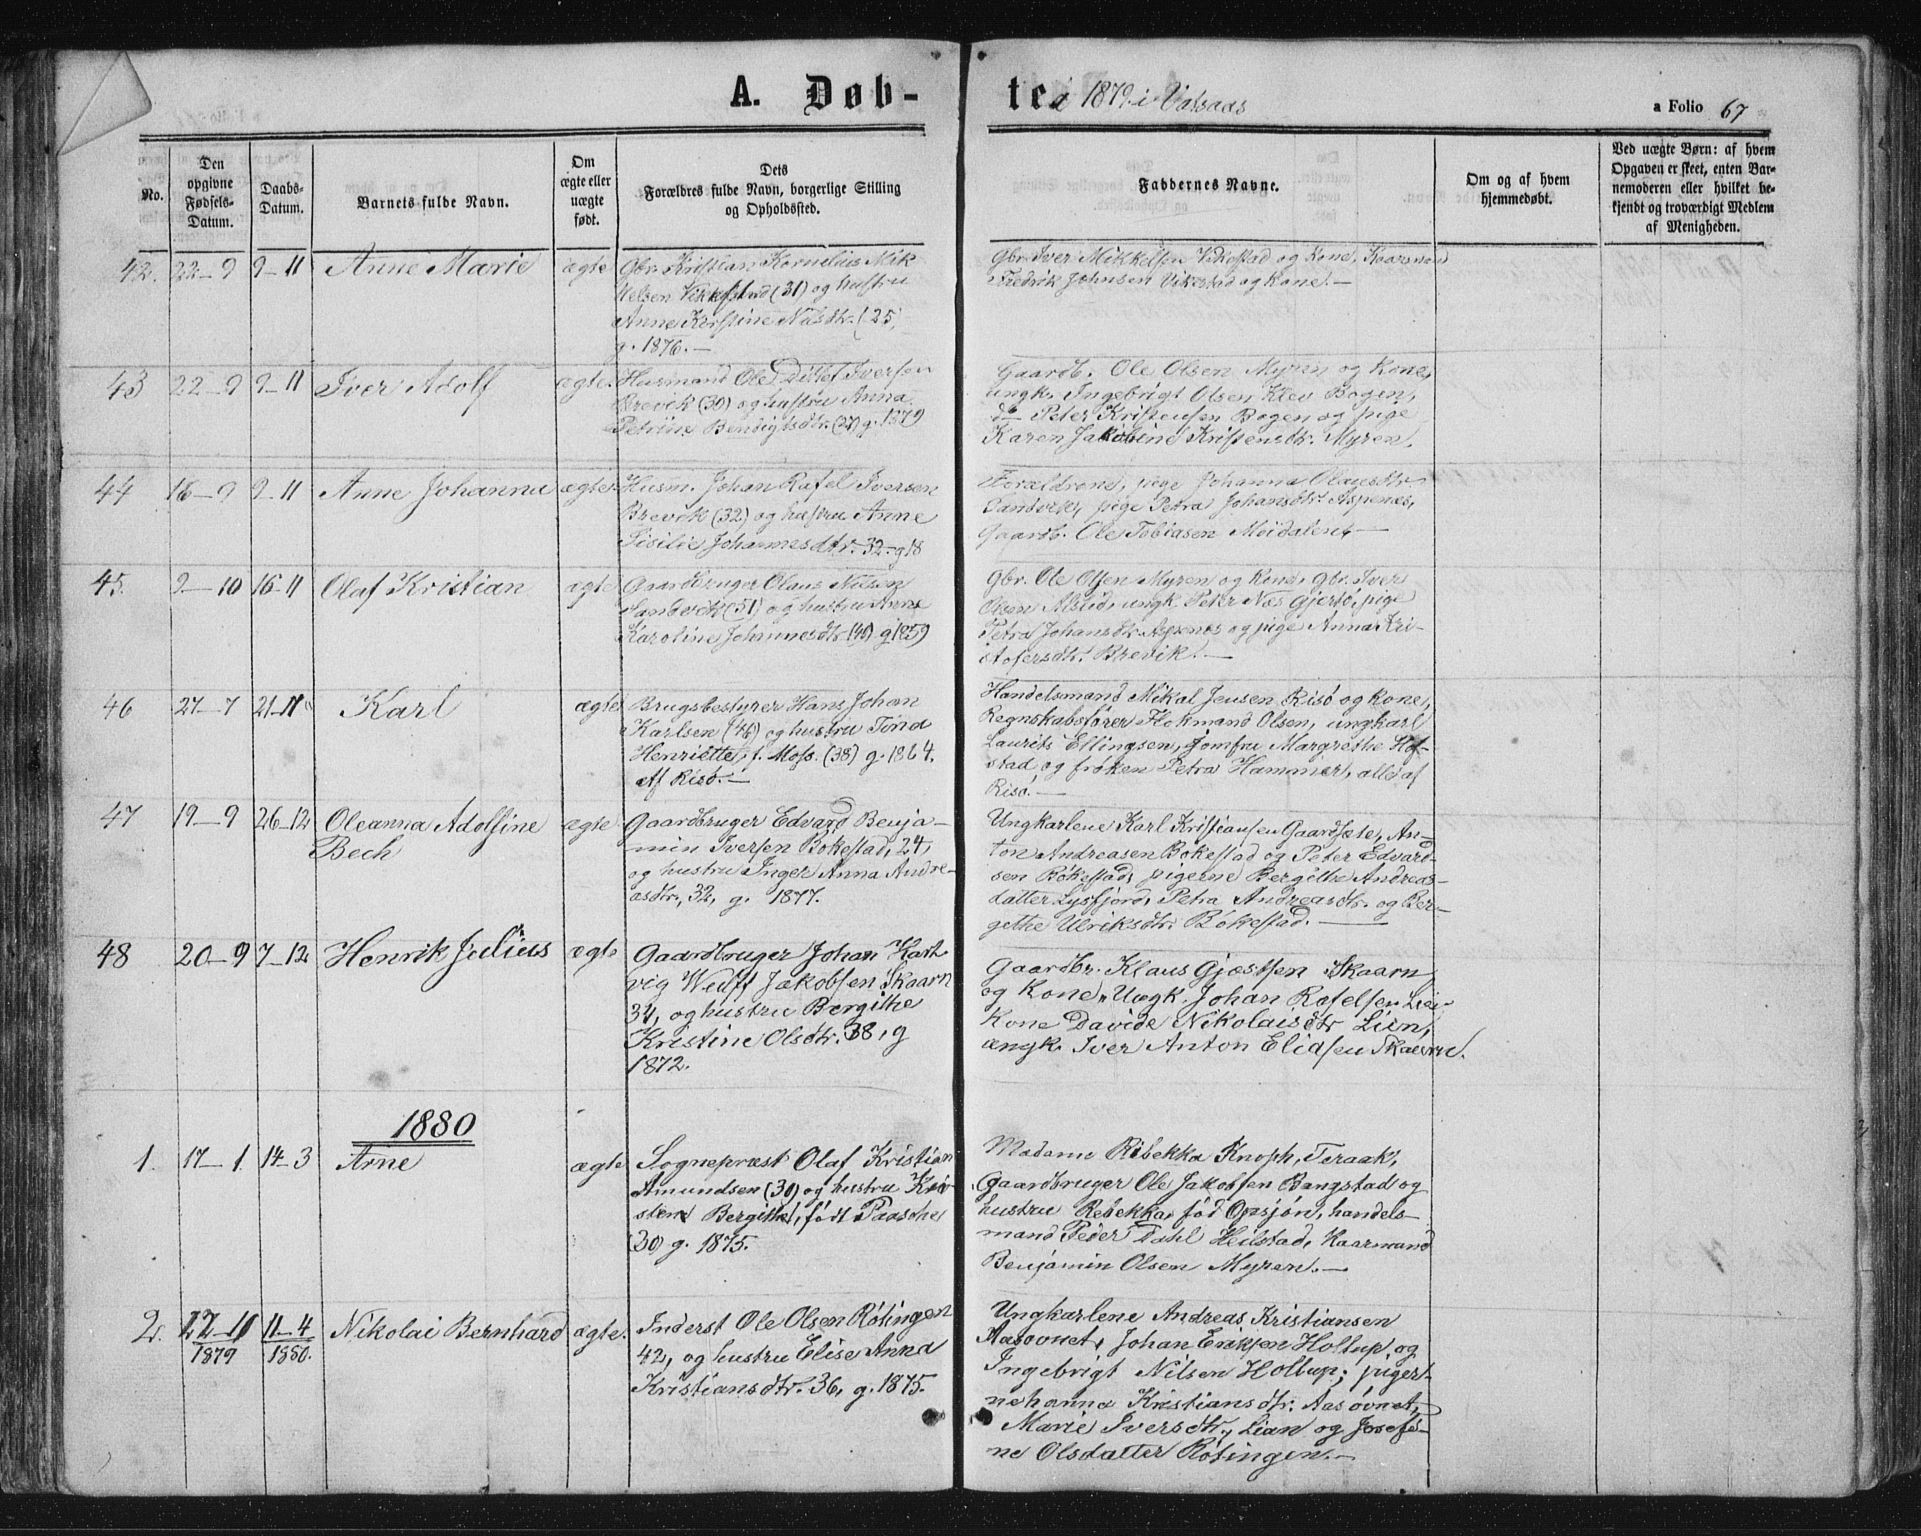 A. Døb-
te
1879 i
a Folio 67
No.
Den opgivne Fødsels-Datum.
Daabs-Datum.
Barnets fulde Navn.
Om ægte eller uægte født.
Dets
Forældres fulde Navn, borgerlige Stilling
og Opholdssted.
Faddernes Navne.
Om og af hvem
hjemmedøbt.
Ved uægte Børn: af hvem
Opgaven er skeet, enten Bar-
nemoderen eller hvilket be-
kjendt og troværdigt Medlem
af Menigheden.
42. 22-9 9-11 Anne Marie ægte
Gbr. Kristian Kornelius Mik
kelsen Vikkestad (31) og hustru
Anne Kirstine Nilsdtr. (25)
g. 1876.-
Gbr. Iver Mikkelsen Vikestad og Kone, Kaarmand
Fredrik Johnsen Vikestad og Kone.-
43 22-9 9-11 Iver Adolf ægte.
Husmand Ole Ditlef Iversen
Brevik (30) og hustru Anna
Petrine Bendigtsdtr. (27) g. 1879
Gaardb. Ole Olsen Myren og Kone,
ungk. Ingebrigt Olsen Klev Bogen,
do Peter Kristensen Bogen og pige
Karen Jakobine Kristensdtr. Myren.
44 18-9 9-11 Anne Johanna ægte.
Husm. Johan Rafel Iversen
Brevik (32) og hustru Anne
Sisilie Johannesdtr. 32 g 18
Forældrene, pige Johanna Olausdtr
Sandvik, pige Petra Johansdtr. Aspenæs,
Gaardb. Ole Tobiasen Meidalen.-
45. 9-10 16-11 Olaf Kristian ægte
Gaardbruger Olaus Nilsen
Sandvik (51) og hustru Anne
Karoline Johannesdtr (40) g 1859
Gbr. Ole Olsen Myren og Kone, Gbr. Iver
Olsen Alstid, ungk Peter Næs Gjertø, pige
Petra Johansdtr. Aspenæs og pige Anna Kri-
stofersdtr. Brevik.-
46 27-7 21-11 Karl ægte
Brugsbestyrer Hans Johan
Karlsen (46) og hustru Tina
Henriette, f. Moss. (38) g. 1864.
Af Risø.-
Handelsmand Mikal Jensen Risø og Kone,
Regnskabsfører Hokmand Olsen, ungkarl
Laurits Ellingsen, Jomfru Margrethe Hof-
stad og frøken Petra Hammer, alle af
Risø.-
47 19-9 26-12 Oleanna Adolfine
Bech ægte
Gaardbruger Edvard Benja-
min Iversen Bøkestad, 24,
og hustru Inger Anna Andre-
asdtr, 32, g. 1877.
Ungkarlene Karl Kristiansen Gaardsæte, An-
ton Andreasen Bøkestad og Peter Edvard-
sen Bøkestad, pigerne Bergithe Andreas-
datter Lysfjord, Petra Andreasdtr. og Ber-
gethe Ulriksdtr. Bøkestad.-
48 20-9 7-12 Henrik Julius ægte
Gaardbruger Johan Hart
vig Wulff Jakobsen Skaarn
34, og hustru Bergithe
Kristine Olsdtr. 38, g
1872.
Gaardbr. Klaus Gjæstsen Skaarn
og Kone, Ungk. Johan Rafelsen Lien
Kone Davide Nikolaisdtr Lien,
ungk. Iver Anton Elidsen Skaarn.
1880
1. 17-1 14-3 Arne ægte
Sognepræst Olaf Kristian
Amundsen (30) og hustru Kri-
stene Bergithe, født Paasche
(30) g. 1875.
Madame Rebekka Knoph, Teraak,
Gaardbruger Ole Jakobsen Bangstad og
hustru Rebekka, fød Opsjøn, handels-
mand Peder Dahl Heilstad, Kaarmand
Benjamin Olsen Myren.-
2. 22-11 1879 11-4 1880. Nikolai Bernhard ægte.
Inderst Ole Olsen Røtingen
42, og hustru Elise Anna
Kristiansdtr. 36, g. 1875.
Ungkarlene Andreas Kristiansen
Aasovnet, Johan Eriksen Hollup, og
Ingebrigt Nilsen Hollup; pigerne
hanna Kristiansdtr. Aasovnet,
Marie Iversdtr., Lian og Josefi-
ne Olsdatter Røtingen.-